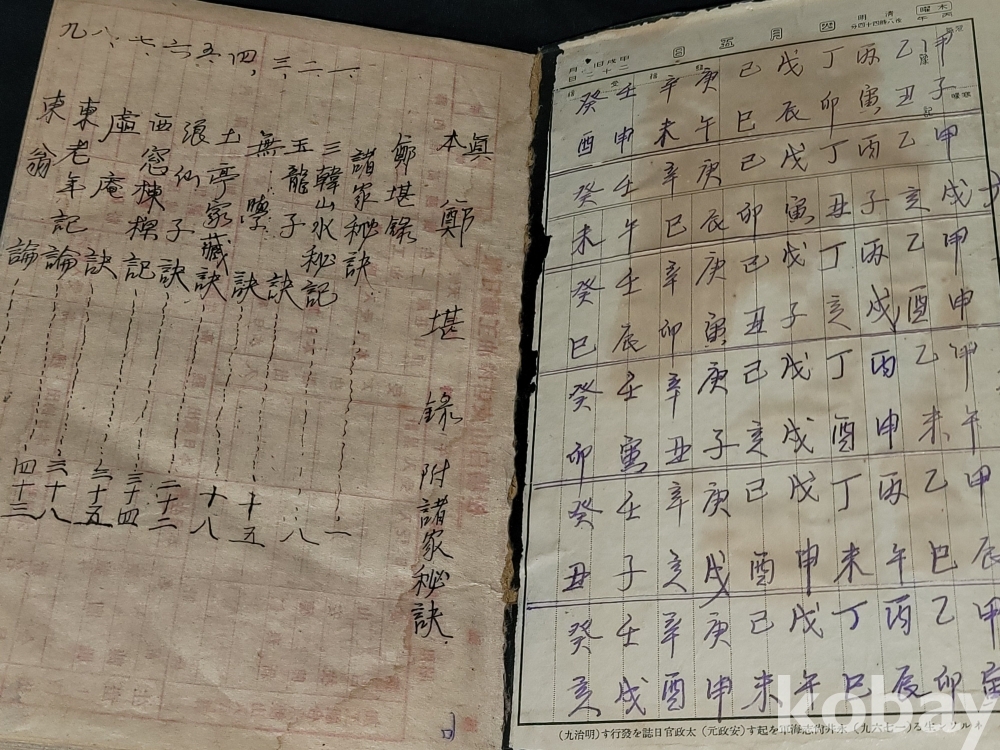 木曜 丙午
清明 夜八時四十四分
四月五日
甲戌旧二月二十二日
甲子 乙丑 丙寅 丁卯 戊辰 己巳 庚午 辛未 壬申 癸酉
甲戌 乙亥 丙子 丁丑 戊寅 己卯 庚辰 辛巳 壬午 癸未
甲申 乙酉 丙戌 丁亥 戊子 己丑 庚寅 辛卯 壬辰 癸巳
甲午 乙未 丙申 丁酉 戊戌 己亥 庚子 辛丑 壬寅 癸卯
甲辰 乙巳 丙午 丁未 戊申 己酉 庚戌 辛亥 壬子 癸丑
甲寅 乙卯 丙辰 丁巳 戊午 己未 庚申 辛酉 壬戌 癸亥
ネルソン生る(一七六九) 永井尚志海軍を起す(安政元) 太政官日誌を發行す(明治九)
眞本鄭堪錄 附諸家秘訣
鄭堪錄
諸家秘訣
一、三韓山水秘記 一
二、玉龍子訣 八
三、無學訣 十五
四、土亭家藏訣 十八
五、張仙子訣 二十二
六、西窓棟樑記 三十四
七、虛庵訣 三十五
八、東老年記論 三十八
九 東翁論 四十三
kobay